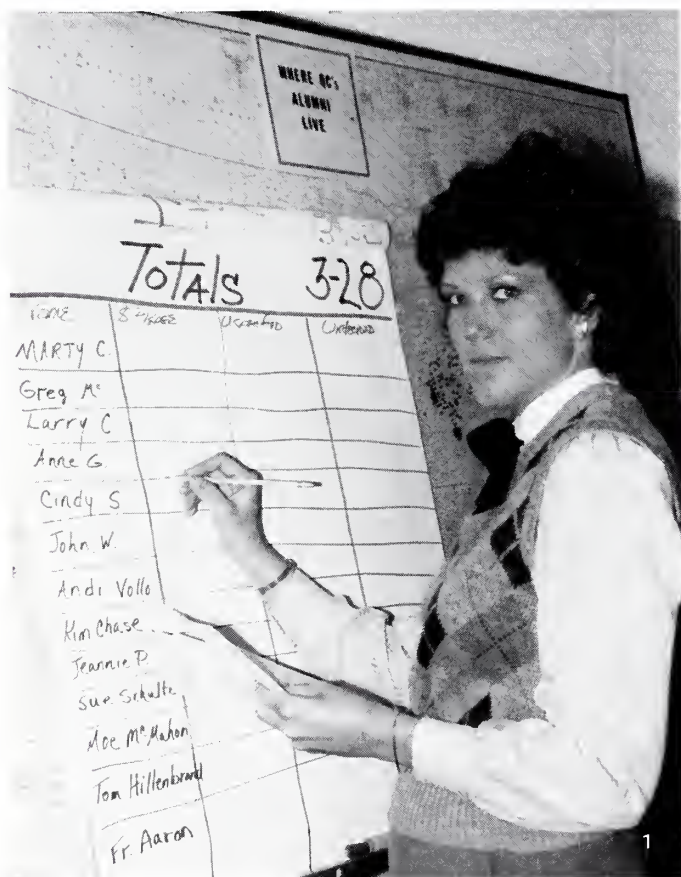 WHERE QC's
ALUMNI
LIVE
TOTALS 3-28
NAME $ Unspecified Unspecified
MARTY C.
Greg Mc
Larry C
Anne G.
Cindy S
John W.
Andi Vollo
Kim Chase
Jeannie P.
Sue Schulte
Moe McMahon
Tom Hillenbrand
Fr. Aaron
1